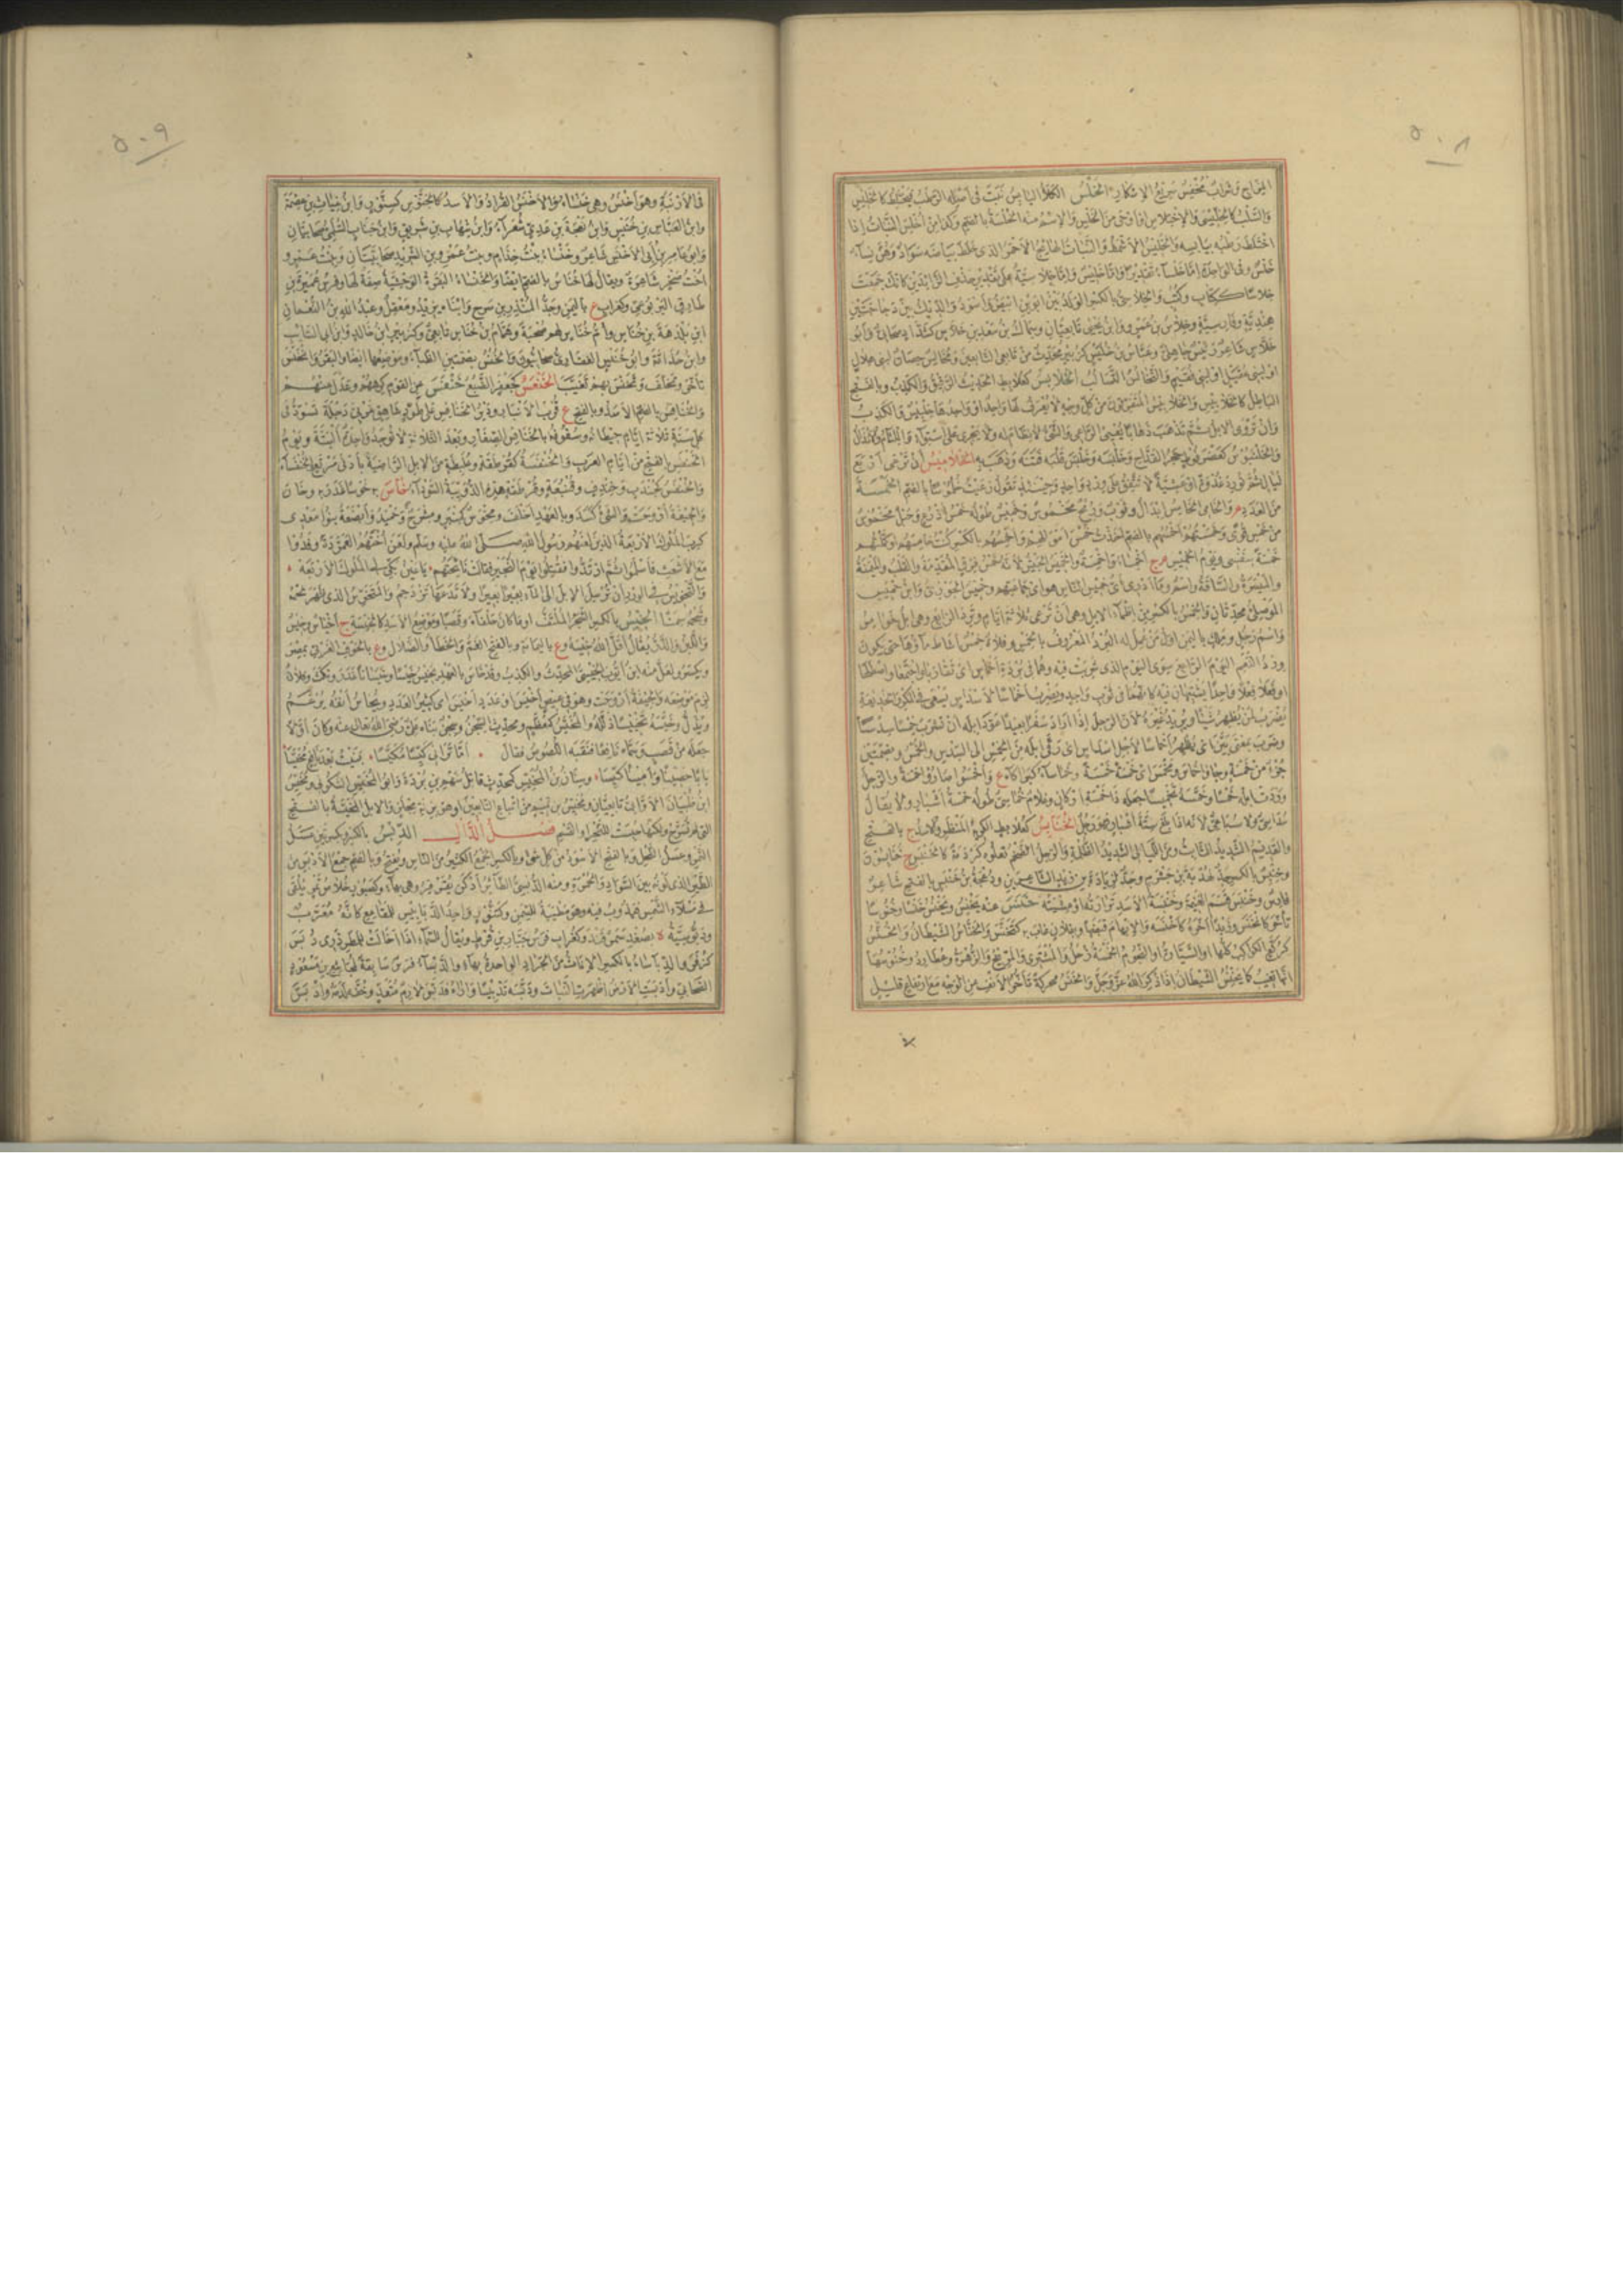 ٥٠٨
المزاج وشراب مخفس سريع الاسكار الخلس الكلأ اليابس نبت في أصله الرطب فيختلط كالخليس
والسلب كالخليسى والاختلاس أو هو أوحى من الخلس والاسم منه الخلسة بالضم وكذا من أخلس النبات إذا
اختلط رطبه بيابسه والخليس الأشمط والنبات الهائج والأحمر الذي خلط بياضه سواد وهن نساء
خلاسا ككتاب وكتب والخلاسي بالكسر الولد بين أبوين أبيض وأسود والديك بين دجاجتين
هندية وفارسية وخلاس بن عمرو وابن يحيى تابعيان وسماك بن سعد بن خلاس ككتان صحابي وأبو
خلاس شاعر رئيس جاهلي وعباس بن خليس كزبير محدث من تابعي التابعين ومخالس حصان لبني هلال
أو لبني عقيل أو لبني فقيم والتخالس التسالب الخلابس كعلابط الحديث الرقيق والكذب وبالفتح
الباطل كالخلابيس والخلابيس المتفرقون من كل وجه لا يعرف لها واحد أو واحدها خلبيس والكذب
وأن تروى الابل ثم تذهب ذهابا يعيي الراعي والشئ لا نظام له ولا يجري على استواء واللئام والأنذال
والخلنبوس كعضرفوط حجر القداح وخلبسه وخلبس قلبه فتنه وذهب به الخلاميس أن ترعى أربع
ليال ثم تورد غدوة أو عشية لا تتفق على ورد واحد وحينئذ تقول رعيت خلموسا بالضم الخمسة
من العدد م والخامي الخامس ابدال وثوب ورمح مخموس وخميس طوله خمس أذرع وحبل مخموس
من خمس قوى وخمستهم أخمسهم بالضم أخذت خمس أموالهم وأخمسهم بالكسر كنت خامسهم أو كملتهم
خمسة بنفسي ويوم الخميس م ج أخمساء وأخمسة والخميس الجيش لأنه خمس فرق المقدمة والقلب والميمنة
والميسرة والساقة واسم وما أدري أي خميس الناس هو أي جماعتهم وخميس الحوزي وابن خميس
الموصلي محدثان والخمس بالكسر من أظماء الابل وهي أن ترعى ثلاثة أيام وترد الرابع وهي ابل خوامس
واسم رجل وملك باليمن أول من عمل له البرد المعروف بالخمس وفلاة خمس انتاط ماؤها حتى يكون
ورد النعم اليوم الرابع سوى اليوم الذي شربت فيه وهما في بردة أخماس أي تقاربا واجتمعا واصطلحا
أو فعلا فعلا واحدا يشتبهان فيه كأنهما في ثوب واحد ويضرب أخماسا لأسداس يسعى في المكر والخديعة
يضرب لمن يظهر شيئا ويريد غيره لأن الرجل إذا أراد سفرا بعيدا عود ابله أن تشرب خمسا سدسا
وضرب بمعنى بين أي يظهر أخماسا لأجل أسداس أي رقى ابله من الخمس الى السدس والخمس وبضمتين
جزء من خمسة وجاؤا خماس ومخمس أي خمسة خمسة وخماساء كبراكاء ع وأخمسوا صاروا خمسة والرجل
وردت ابله خمسا وخمسه تخميسا جعله ذا خمسة أركان وغلام خماسي طوله خمسة أشبار ولا يقال
سداسي ولا سباعي لأنه إذا بلغ ستة أشبار فهو رجل الخنابس كعلابط الكريه المنظر والأسد ج بالفتح
والقديم الشديد الثابت ومن الليالي الشديد الظلمة والرجل الضخم تعلوه كردمة كالخنبس ج خنابسون
وخنبس بالكسر جد هدبة بن خشرم وجد لزيادة بن زيد الشاعرين ودجيجة بن خنبس بالفتح شاعر
فارس وخنبس قسم الغنيمة وخنبسة الأسد ترارته أو مشيته خنس عنه يخنس ويخنس خنسا وخنوسا
تأخر كانخنس وزيدا أخره كأخنسه والابهام قبضها وبفلان غاب به كتخنس والخناس الشيطان والخنس
كركع الكواكب كلها أو السيارة أو النجوم الخمسة زحل والمشتري والمريخ والزهرة وعطارد وخنوسها
أنها تغيب كما يخنس الشيطان إذا ذكر الله عز وجل والخنس محركة تأخر الأنف عن الوجه مع ارتفاع قليل
٥٠٩
في الأرنبة وهو أخنس وهي خنساء والأخنس القراد والأسد كالخنوس كسنور وابن غياث بن عصمة
وابن العباس بن خنيس وابن نعجة بن عدي شعراء وابن شهاب بن شريق وابن جناب السلمي صحابيان
وأبو عامر بن أبي الأخنس شاعر وخنساء بنت خذام وبنت عمرو بن الشريد صحابيتان وبنت عمرو
أخت صخر شاعرة ويقال لها خناس بالضم أيضا والخنساء البقرة الوحشية صفة لها وفرس عميرة بن
طارق اليربوعي وكغراب ع باليمن وجد المنذر بن سرح وابناه يزيد ومعقل وعبد الله بن النعمان
ابن بلذمة بن خناس وأم خناس لهم صحبة وهمام بن خناس تابعي وكزبير ابن خالد وابن أبي السائب
وابن حذافة وأبو خنيس الغفاري صحابيون والخنس بضمتين الظباء وموضعها أيضا والبقر وانخنس
تأخر وتخلف وتخنس بهم تغيب الخنعس كجعفر الضبع خنفس عن القوم كرههم وعدل عنهم
والخنافس بالضم الأسد وبالفتح ع قرب الأنبار ودير الخنافس على طور شاهق غربي دجلة تسود في
كل سنة ثلاثة أيام حيطانه وسقوفه بالخنافس الصغار وبعد الثلاثة لا توجد واحدة ألبتة ويوم
الخنفس بالفتح من أيام العرب والخنفسة كقرطقة وعلبطة من الابل الراضية بأدنى مرتع والخنفساء
والخنفس كجندب وخندف وقنبعة وقرطقة هذه الدويبة السوداء خاس به خوسا غدر به وخان
والجيفة أروحت والشئ كسد وبالعهد أخلف ومخوس كمنبر ومشرح وجمد وأبضعة بنو معدي
كرب الملوك الأربعة الذين لعنهم رسول الله صلى الله عليه وسلم ولعن أختهم العمردة وفدوا
مع الأشعث فأسلموا ثم ارتدوا فقتلوا يوم النجير فقالت نائحتهم يا عين بكي لي الملوك الأربعة
والتخويس في الورد أن ترسل الابل إلى الماء بعيرا بعيرا ولا تدعها تزدحم والمتخوس الذي ظهر لحمه
وشحمه سمنا الخيس بالكسر الشجر الملتف أو ما كان حلفاء وقصبا وموضع الأسد كالخيسة ج أخياس وخيس
واللبن والدر يقال أقل الله خيسه وع باليمامة وبالفتح الغم والخطأ والضلال وع بالحوف الغربي بمصر
ويكسر ولعل منه ابن أبي أيوب الخيسي المحدث والكذب وقد خاس بالعهد يخيس خيسا وخيسانا غدر ونكث وفلان
لزم موضعه والجيفة أروحت وهو في عيص أخيس أو عدد أخيس أي كثير العدد ويخاس أنفه يرغم
ويذل وخيسه تخييسا ذلله والمخيس كمعظم ومحدث السجن وسجن بناه علي رضي الله تعالى عنه وكان أولا
جعله من قصب وسماه نافعا فنقبه اللصوص فقال أما تراني كيسا مكيسا بنيت بعد نافع مخيسا
بابا حصينا وأمينا كيسا وسنان بن المخيس كمحدث قاتل سهم بن بردة وأبو المخيس السكوني ومخيس
ابن ظبيان الأوابي تابعيان ومخيس بن تميم من أتباع التابعين أو هو بزنة مجلز والابل المخيسة بالفتح
التي لم تسرح ولكنها حبست للنحر أو القسم فصل الدال الدبس بالكسر وبكسرتين عسل
التمر وعسل النحل وبالفتح الأسود من كل شئ وبالكسر الجمع الكثير من الناس ويفتح وبالضم جمع الأدبس من
الطير الذي لونه بين السواد والحمرة ومنه الدبسي لطائر أدكن يقرقر وهي بهاء وكصبور خلاص تمر يلقى
في مسلاء السمن فيذوب فيه وهو مطيبة للسمن وكتنور واحد الدبابيس للمقامع كأنه معرب
ودبوسية ة بصغد سمرقند وكغراب فرس جبار بن قرط ويقال للسماء إذا أخالت للمطر دري دبس
كزفر والدبساء بالكسر الاناث من الجراد الواحدة بهاء والدبساء فرس سابقة لمجاشع بن مسعود
الصحابي وأدبست الأرض أظهرت النبات ودبسه تدبيسا واراه فدبس لازم متعد وخفه لدمه وادبس